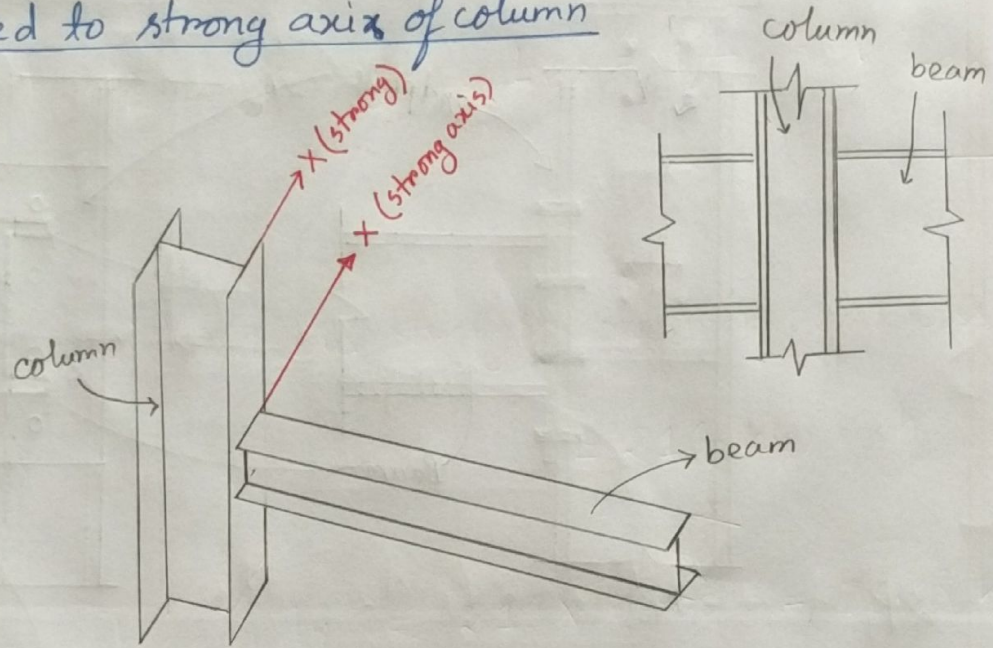 ed to strong axis of column
column
beam
X (strong)
X (strong axis)
column
beam